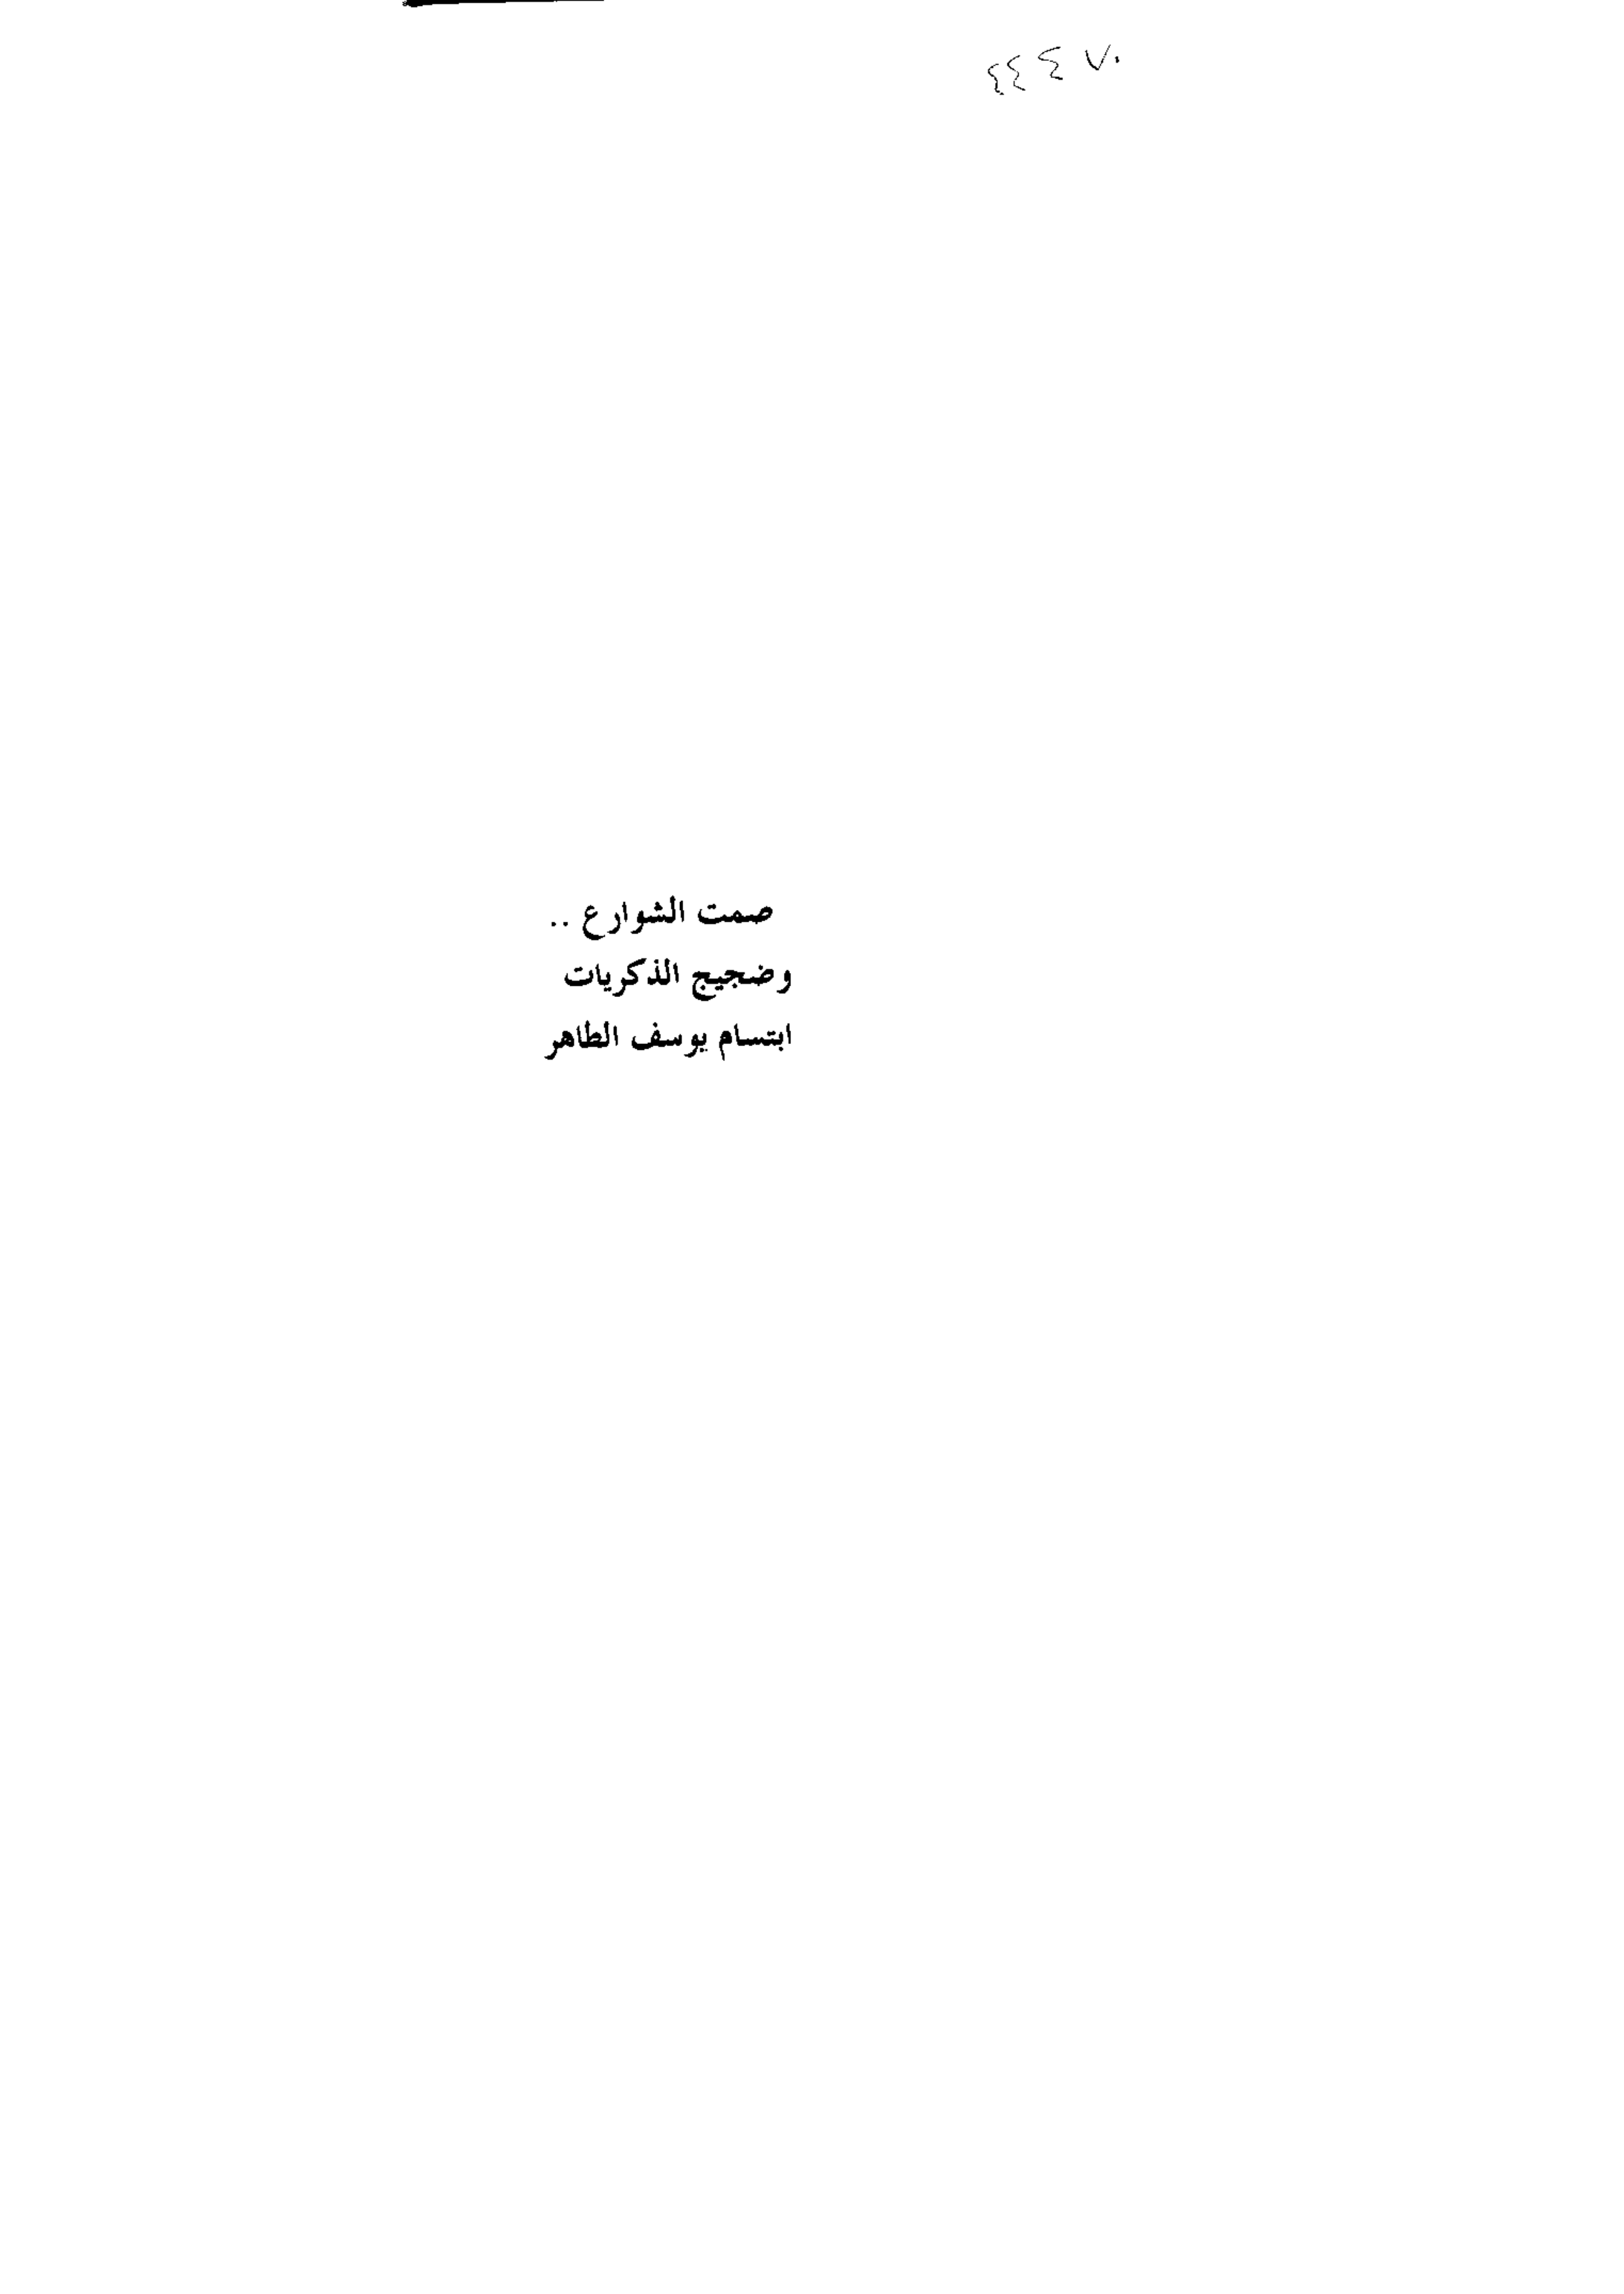 ٤٤٤٧٠
صمت الشوارع ..
وضجيج الذكريات
ابتسام يوسف الطاهر